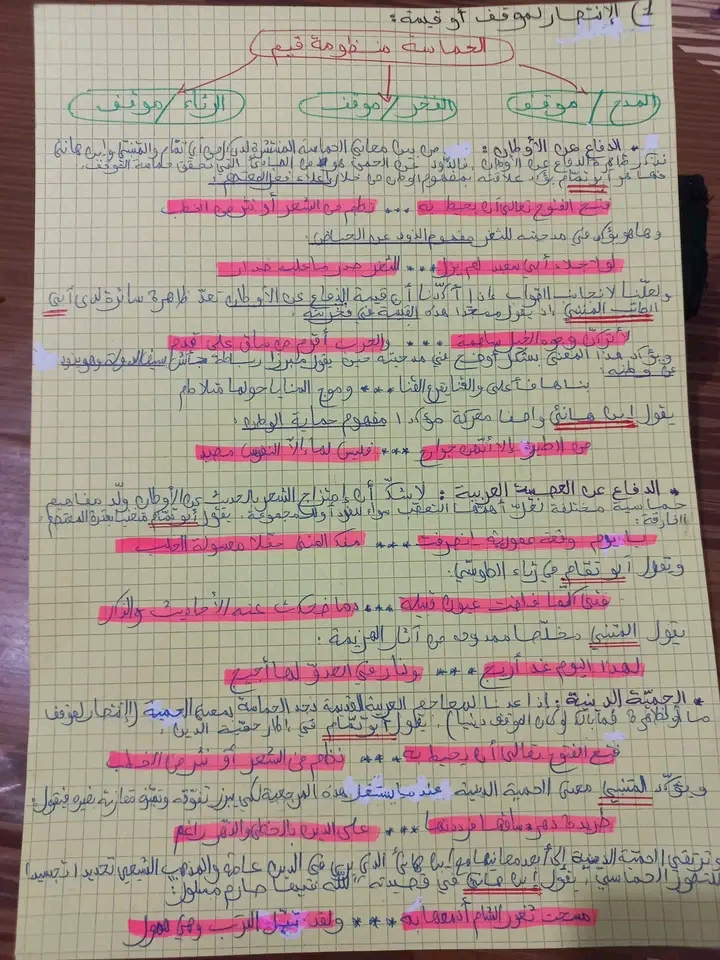 1) الإنتصار لموقف أو قيمة:
الحماسة منظومة قيم
المدح / موقف   الفخر / موقف   الرثاء / موقف
* الدفاع عن الأوطان: من بين معاني الحماسة المنتشرة لدى أبي تمّام والمتنبّي وابن هانئ
نذكر ظاهرة الدفاع عن الأوطان. فالذود عن الحمى هو من المبادئ التي تحقق حماسة الموقف،
فها هو أبو تمّام يؤكد علاقته بمفهوم الوطن من خلال إعلاء فعل المعتصم:
فتح الفتوح تعالى أن يحيط به *** نظم من الشعر أو نثر من الخطب
وها هو يؤكد في مدحيته للثغر مفهوم الذود عن الحياض:
لولا جلاد أبي سعيد لم يزل *** للثغر صدر ما عليه صدار
ولعلّنا لا نجانب الصواب إذا أكّدنا أن قيمة الدفاع عن الأوطان تعدّ ظاهرة سائرة لدى أبي
الطيّب المتنبّي إذ يقول ممجّدا هذه القيمة في فخريته:
لأتركنّ وجوه الخيل ساهمة *** والحرب أقوم من ساق على قدم
ويؤكد هذا المعنى بشكل أوضح في مدحيته حين يقول مبرزا رباطة جأش سيف الدولة وهو يذود
عن وطنه:
بناها فأعلى والقنا يقرع القنا *** وموج المنايا حولها متلاطم
يقول ابن هانئ واصفا معركة مؤكدا مفهوم حماية الوطن:
من الطير إلا أنّهن جوارح *** فليس لها إلّا النفوس مصيد
* الدفاع عن العصبية العربية: لا شكّ أن إمتزاج الشعر بالحديث عن الأوطان ولّد مفاهيم
حماسية مختلفة لعلّ أهمّها التعصّب سواء للفرد أو المجموعة. يقول أبو تمّام بقدرة المعتصم
الخارقة:
يا يوم وقعة عمورية انصرفت *** منك المنى حفّلا معسولة الحلب
ويقول أبو تمّام في رثاء الطوسي:
فتى كلّما فاضت عيون قبيلة *** دما ضحكت عنه الأحاديث والذكر
يقول المتنبّي مخلّصا ممدوحه من آثار الهزيمة:
لهذا اليوم غد أريج *** ونار في العدوّ لها أجيج
* الحميّة الدينية: إذا عدنا لمعاجم العربية القديمة نجد الحماسة بمعنى الحمية (الإنتصار لموقف
ما أو لظاهرة وكان الموقف دينيا). يقول أبو تمّام في إطار حميّة الدين:
فتح الفتوح تعالى أن يحيط به *** نظام من الشعر أو نثر من الخطب
ويؤكّد المتنبّي معنى الحمية الدينية عندما يستغل هذه المرجعية لكي يبرز تفوّقه وتميّزه مقارنة بغيره فيقول:
طريدة دهر ساقها فرددتها *** على الدين بالخطّي والدهر راغم
و ترتقي الحميّة الدينية إلى أبعد معانيها مع ابن هانئ الذي يرى في الدين عامة والمذهب الشيعي تحديدا تجسيدا
للتصوّر الحماسي، يقول ابن هانئ في قصيدته "للّه سيف صارم مسلول":
مسحت ثغور الشام أدمعها به *** ولقد تبلّ الترب وهي همول